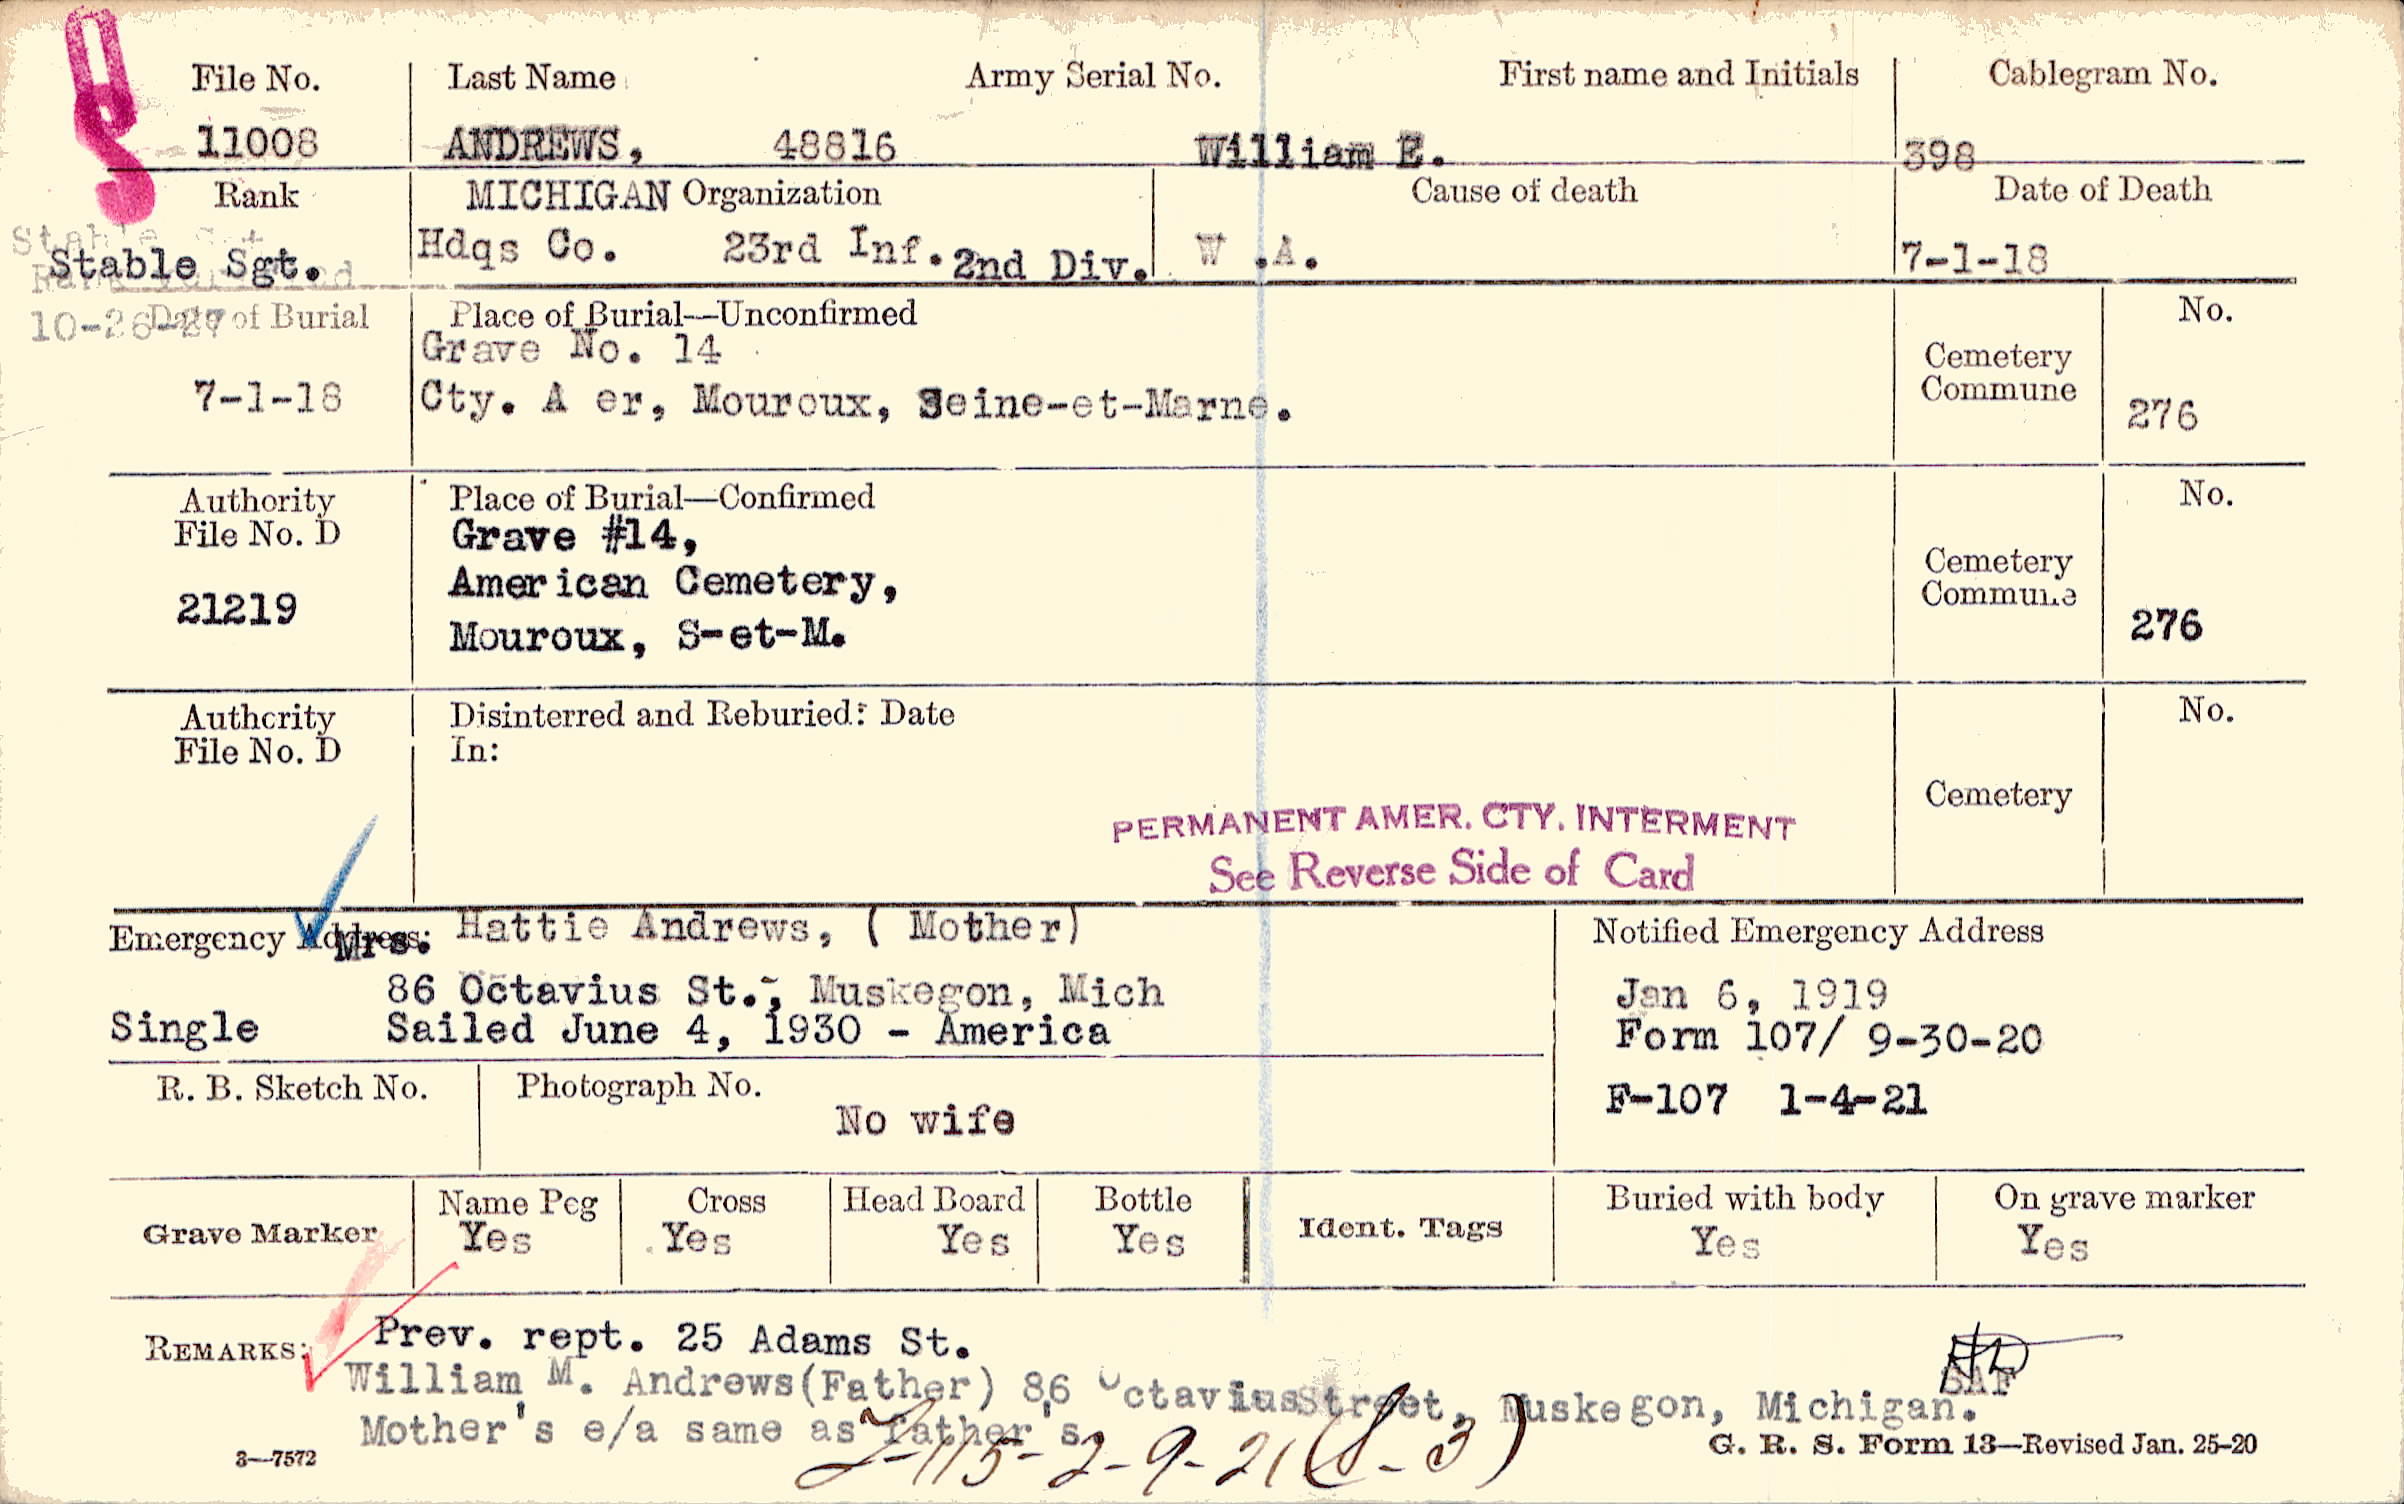 File No. Last Name Army Serial No. First name and Initials Cablegram No.
11008 ANDREWS, 48816 William E. 398
Rank MICHIGAN Organization Cause of death Date of Death
Stable Sgt. Hdqs Co. 23rd Inf. 2nd Div. W .A. 7-1-18
10-26-27
Date of Burial Place of Burial—Unconfirmed No.
Grave No. 14
Cemetery
Commune
7-1-18 Cty. A er, Mouroux, Seine-et-Marne. 276
Authority Place of Burial—Confirmed No.
File No. D Grave #14,
American Cemetery, Cemetery
Commune
21219 276
Mouroux, S-et-M.
Authority Disinterred and Reburied: Date No.
File No. D In:
Cemetery
PERMANENT AMER. CTY. INTERMENT
See Reverse Side of Card
Emergency Address: Mrs. Hattie Andrews, ( Mother) Notified Emergency Address
86 Octavius St., Muskegon, Mich Jan 6, 1919
Single Sailed June 4, 1930 - America Form 107/ 9-30-20
R. B. Sketch No. Photograph No. F-107 1-4-21
No wife
Grave Marker Name Peg Cross Head Board Bottle Ident. Tags Buried with body On grave marker
Yes Yes Yes Yes Yes Yes
REMARKS: Prev. rept. 25 Adams St.
SAF
William M. Andrews(Father) 86 Octavius Street, Muskegon, Michigan.
Mother's e/a same as father's.
-115-2-9-21 (S-3)
3—7572 G. R. S. Form 13—Revised Jan. 25-20